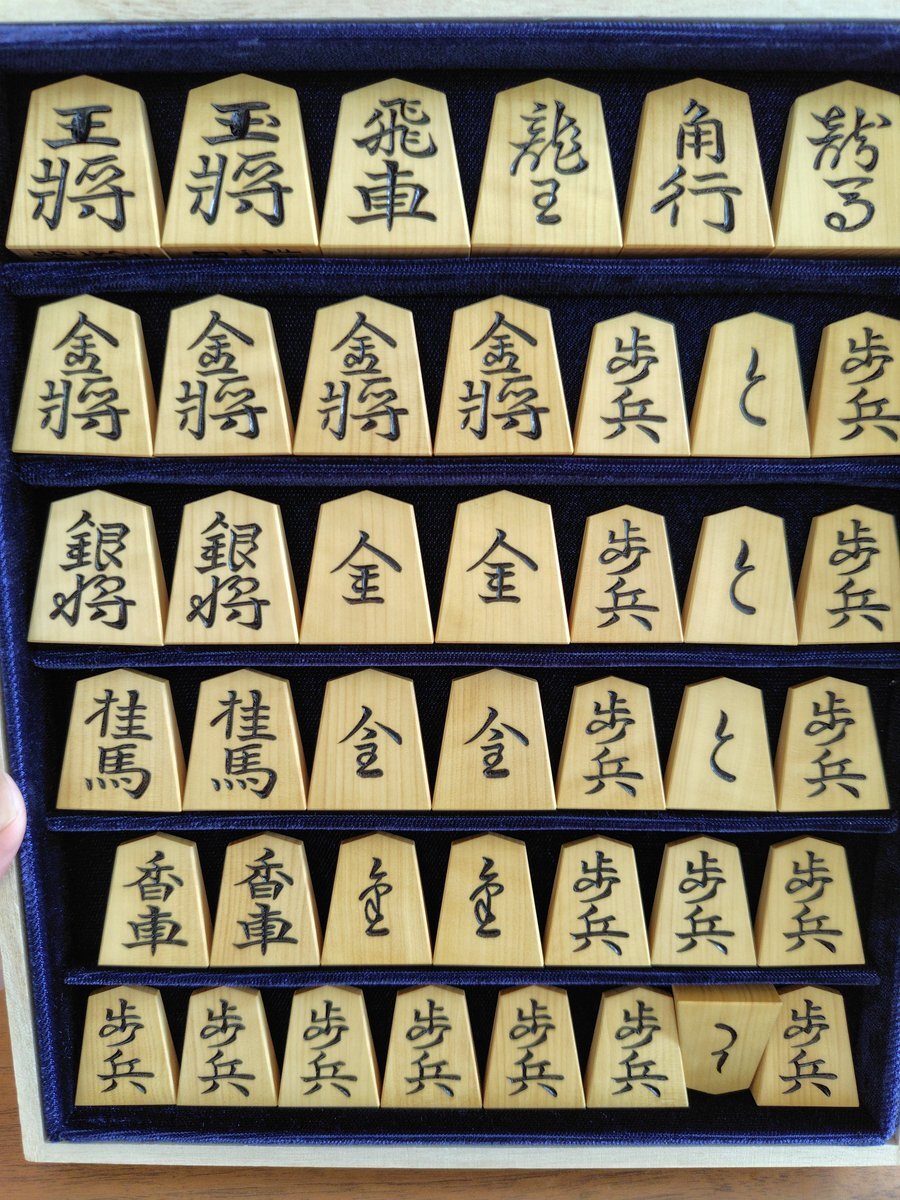 王將 玉將 飛車 龍王 角行 龍馬
金將 金將 金將 金將 歩兵 と 歩兵
銀将 銀将 全 全 歩兵 と 歩兵
桂馬 桂馬 全 全 歩兵 と 歩兵
香車 香車 金 金 歩兵 歩兵 歩兵
歩兵 歩兵 歩兵 歩兵 歩兵 歩兵 と 歩兵